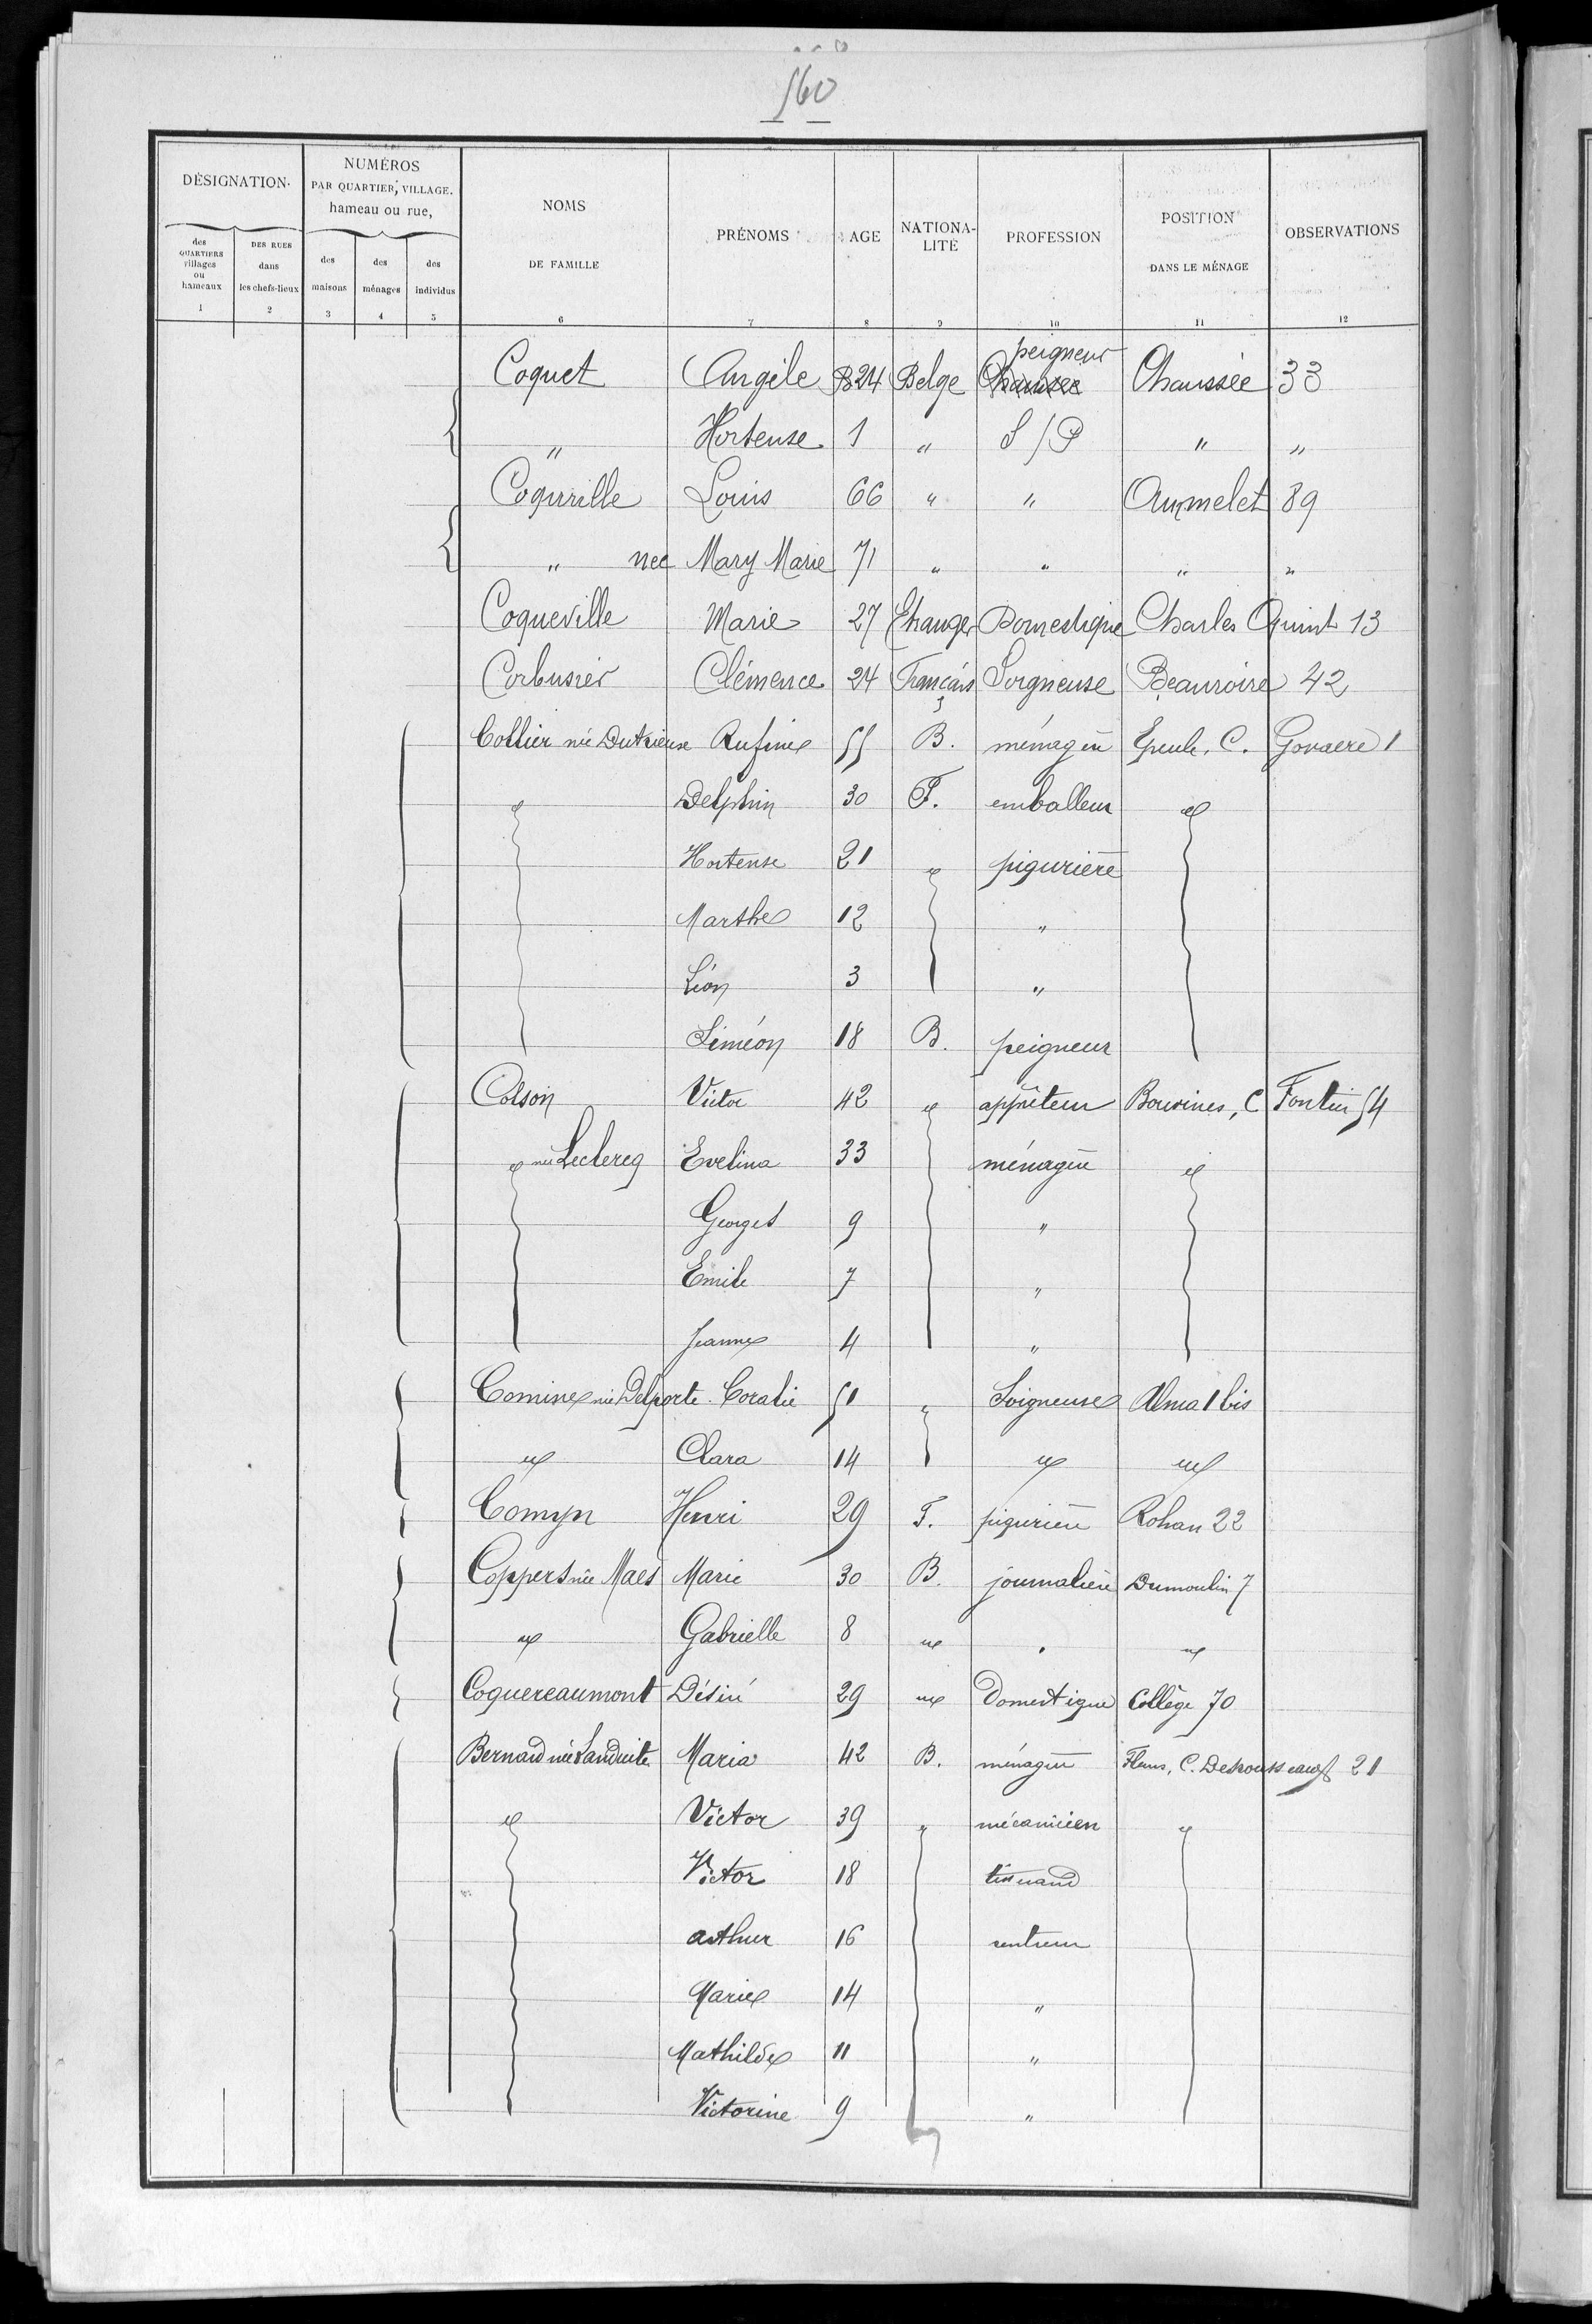 560
DÉSIGNATION
NUMÉROS PAR QUARTIER, VILLAGE. hameau ou rue,
NOMS DE FAMILLE
PRÉNOMS
AGE
NATIONALITÉ
PROFESSION
POSITION DANS LE MÉNAGE
OBSERVATIONS
des QUARTIERS villages ou hameaux
DES RUES dans les chefs-lieux
des maisons
des ménages
des individus
1 2 3 4 5 6 7 8 9 10 11 12
Coquet Angèle 24 Belge peigneur Chaussée 33
" Hortense 1 " S/P " "
Coquville Louis 66 " " Aummelet 89
" nee Mary Marie 71 " " " "
Coqueville Marie 27 Etranger Domestique Charles Quint 13
Corbusier Clémence 24 Français Soigneuse Beauvoire 42
Collier née Dutrieuse Rufine 55 B. ménagère Epeule, C. Govaere 1
" Delphin 30 F. emballeur "
Hortense 21 " piqurière
Marthe 12 "
Léon 3 "
Siméon 18 B. peigneur
Colson Victor 42 " apprêteur Bouvines, C Fontier 54
" née Leclercq Evelina 33 ménagère "
Georges 9 "
Emile 7 "
Jeanne 4 "
Comine née Delporte Coralie 51 " Soigneuse Alma 1 bis
" Clara 14 " "
Comyn Henri 29 F. piqurière Rohan 22
Coppers née Maes Marie 30 B. journalière Dumoulin 7
" Gabrielle 8 " " "
Coquereaumont Désiré 29 " Domestique Collège 70
Bernard née Landuite Maria 42 B. ménagère Flers, C. Desrousseaux 21
" Victor 39 " mécanicien "
Victor 18 tisserand
Arthur 16 rentreur
Marie 14 "
Mathilde 11 "
Victorine 9 "